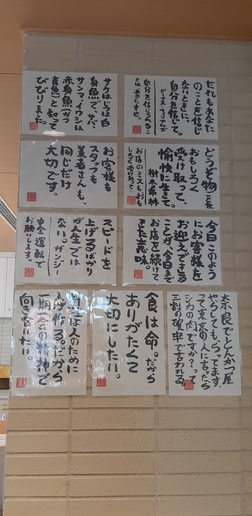 だれもあなた
のことを信じ
ないときに、
自分を信じて。
サケはじつは白
身魚で、サバ、
サンマ、イワシは
赤身魚(かつ
青魚)と知って
びびりました。
どうぞ物ごとを
おもしろく
受け取って、
ウケに生きて
樹木希林
お客様も
スタッフも
業者さんも、
同じだけ
大切です。
今日このよう
にお客様を
お迎えできる
ことが、今日まで
お店を続けて
きた意味。
スピードを
上げるばかり
が人生では
ない。ガンジー
安全運転で
お願いします。
奈良でとんかつ屋
やらしてもらってます。
って東京の人に言ったら
シカの肉ですか?って
三割の確率で言われる。
食は命。だから
ありがたくて
大切にしたい。
人のために
だから
一期一会の精神で
向き合いたい。